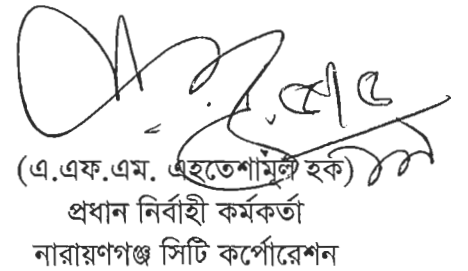 (এ.এফ.এম. এহতেশামুল হক)
প্রধান নির্বাহী কর্মকর্তা
নারায়ণগঞ্জ সিটি কর্পোরেশন